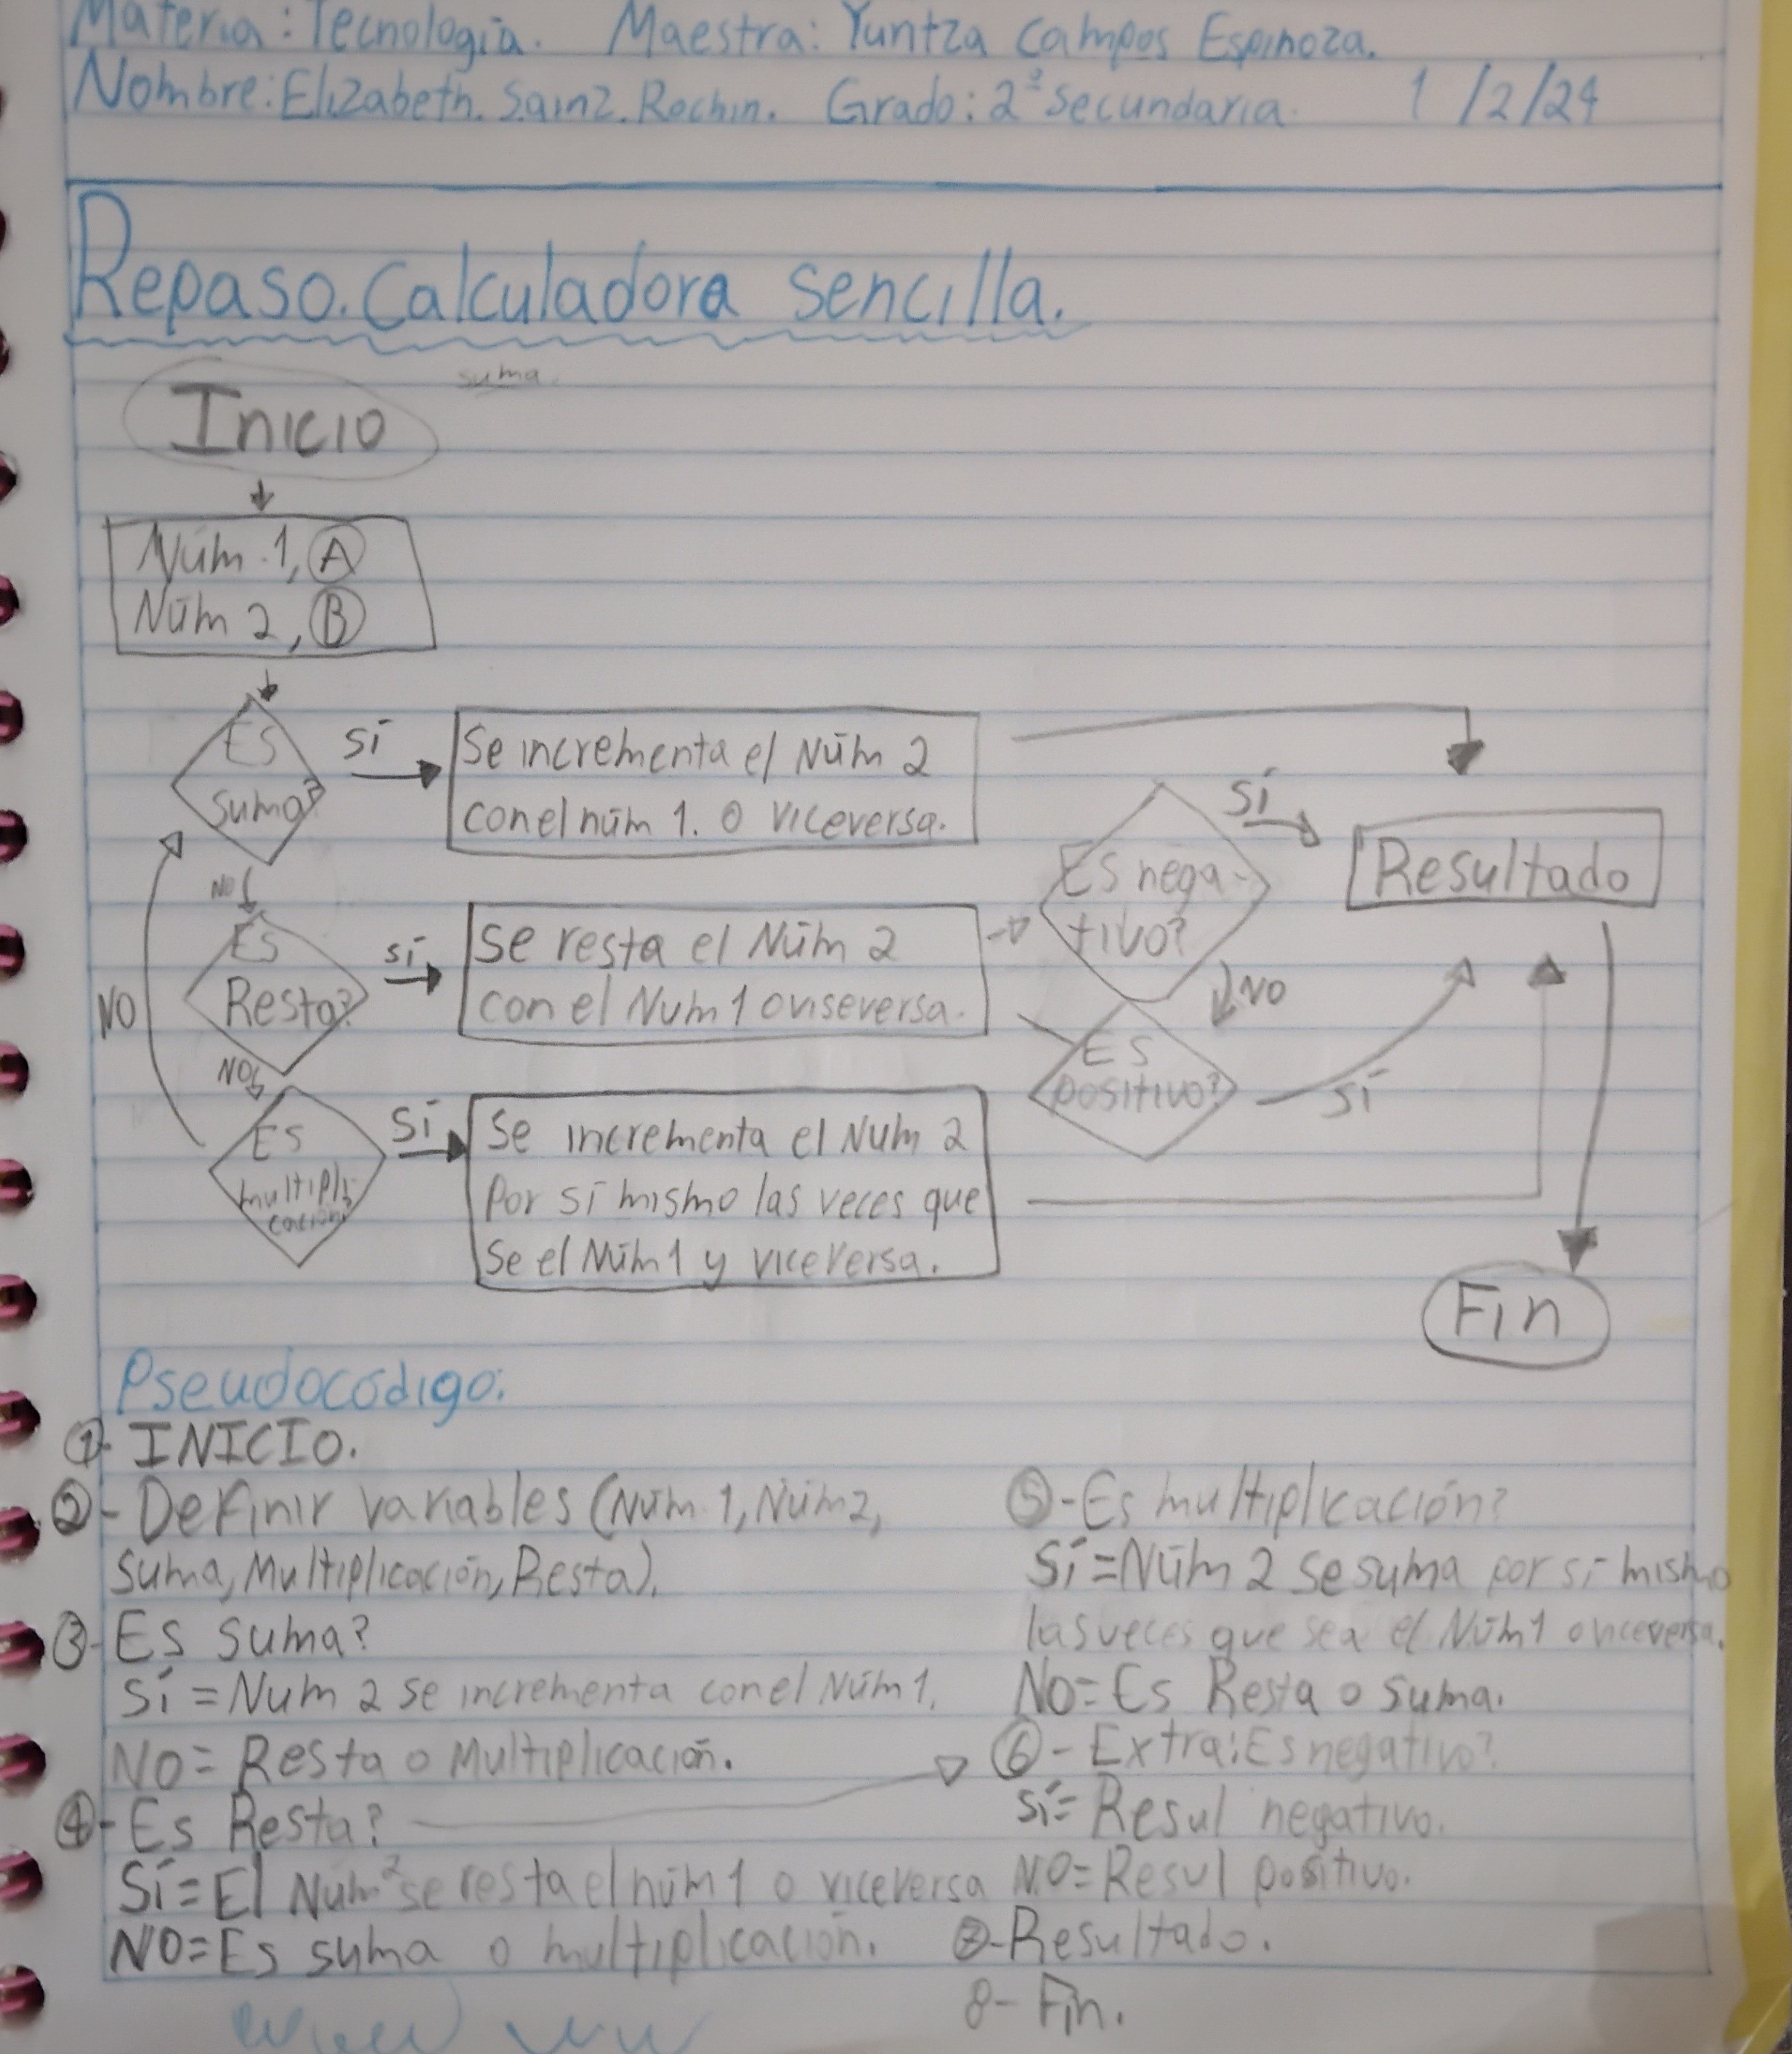 Materia: Tecnología. Maestra: Yuntza Campos Espinoza.
Nombre: Elizabeth. Sainz. Rochin. Grado: 2º Secundaria. 1/2/24
Repaso. Calculadora sencilla.
suma.
Inicio
Núm 1, A
Núm 2, B
Es suma?
Sí
Se incrementa el Núm 2
con el núm 1. o viceversa.
NO
Es Resta?
Sí
Se resta el Núm 2
con el Num 1 o viseversa.
Es nega-
tivo?
Sí
Resultado
NO
Es
positivo?
Sí
NO
Es
multipli-
cación?
Sí
Se incrementa el Num 2
Por sí mismo las veces que
Se el Núm 1 y viceversa.
NO
Fin
Pseudocódigo:
1- INICIO.
2- Definir variables (Núm 1, Núm 2,
Suma, Multiplicación, Resta).
3- Es suma?
Sí = Num 2 se incrementa con el Núm 1.
NO = Resta o Multiplicación.
4- Es Resta?
Sí = El Núm 2 se resta el núm 1 o viceversa
NO = Es suma o multiplicación.
5- Es multiplicación?
Sí = Núm 2 se suma por sí mismo
las veces que sea el Núm 1 o viceversa.
No = Es Resta o suma.
6- Extra: Es negativo?
Sí = Resul negativo.
NO = Resul positivo.
7- Resultado.
8- Fin.